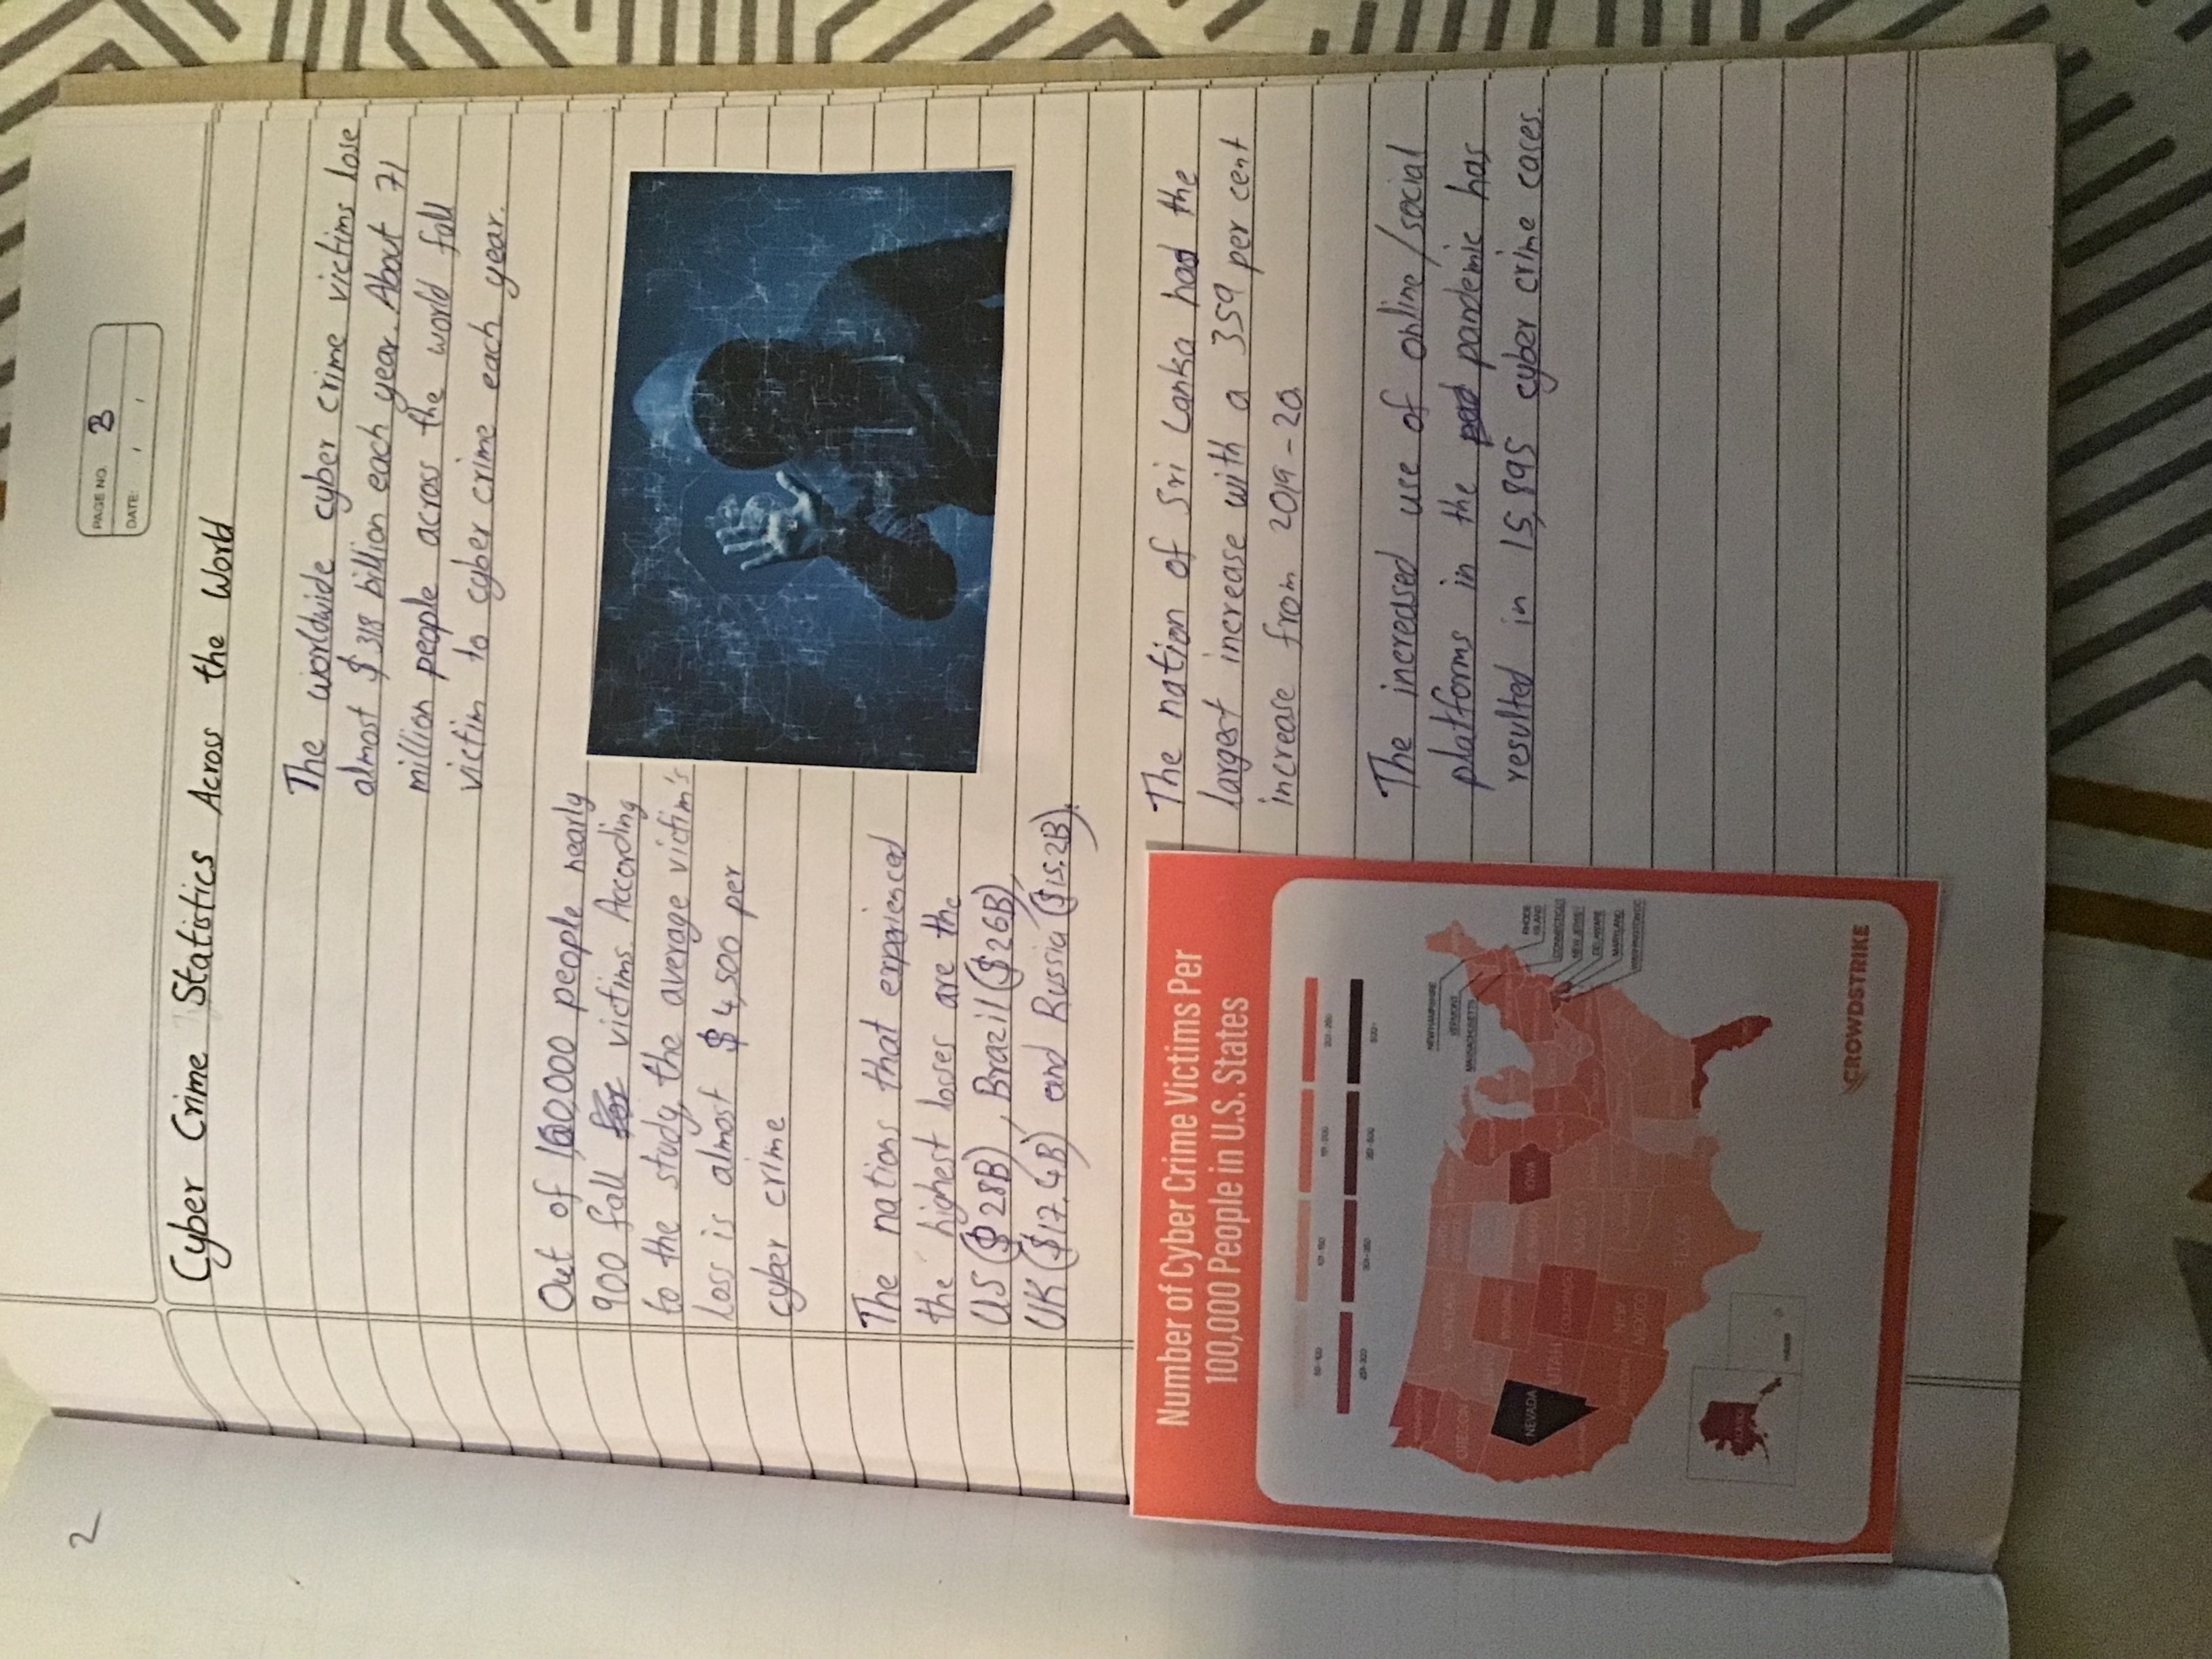 2
PAGE NO. 3
DATE: / /
Cyber Crime Statistics Across the World
The worldwide cyber crime victims lose
almost $318 billion each year. About 71
million people across the world fall
victim to cyber crime each year.
Out of 1,00,000 people nearly
900 fall victims. According
to the study, the average victim's
loss is almost $4,500 per
cyber crime
The nations that experienced
the highest losses are the
US ($28B), Brazil ($26B),
UK ($17.4B) and Russia ($15.2B).
Number of Cyber Crime Victims Per
100,000 People in U.S. States
101-150
201-250
251-300
301-350
351-500
500+
WASHINGTON
OREGON
MONTANA
IDAHO
WYOMING
NEVADA
UTAH
COLORADO
KANSAS
IOWA
ARIZONA
NEW
MEXICO
TEXAS
ALASKA
HAWAII
NEW HAMPSHIRE
VERMONT
MASSACHUSETTS
RHODE
ISLAND
CONNECTICUT
NEW JERSEY
DELAWARE
MARYLAND
WASHINGTON DC
CROWDSTRIKE
The nation of Sri Lanka had the
largest increase with a 359 per cent
increase from 2019-20.
The increased use of online/social
platforms in the pandemic has
resulted in 15,895 cyber crime cases.